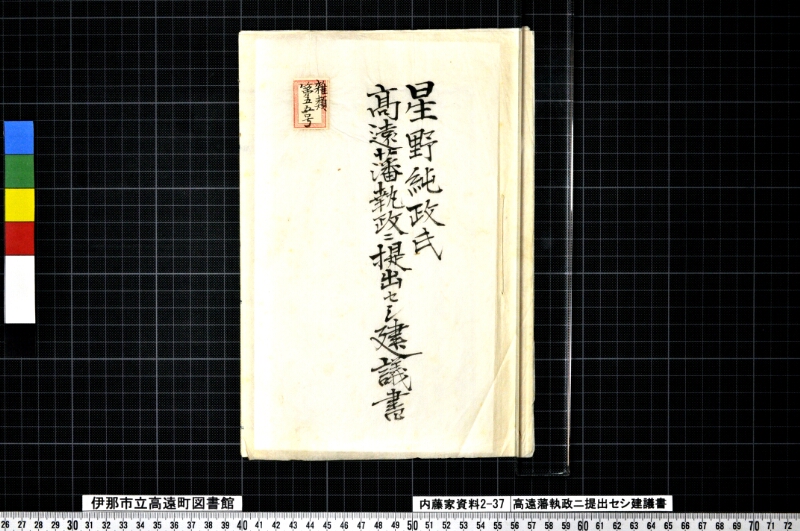 星野純政氏
高遠藩執政ニ提出セシ建議書
雑類
第五五号
伊那市立高遠町図書館
内藤家資料2-37
高遠藩執政ニ提出セシ建議書
26 27 28 29 30 31 32 33 34 35 36 37 38 39 40 41 42 43 44 45 46 47 48 49 50 51 52 53 54 55 56 57 58 59 60 61 62 63 64 65 66 67 68 69 70 71 72